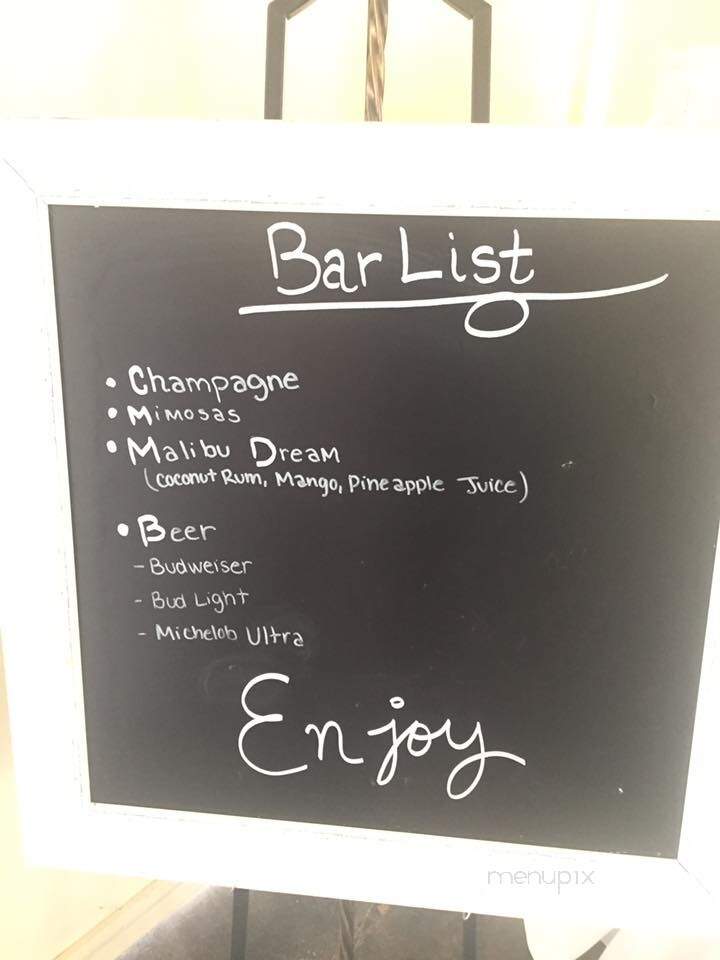 Bar List
• Champagne
• Mimosas
• Malibu Dream
(Coconut Rum, Mango, Pineapple Juice)
• Beer
- Budweiser
- Bud Light
- Michelob Ultra
Enjoy
menupix